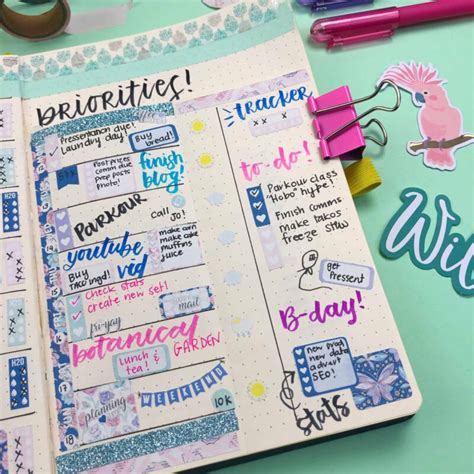 PRIORITIES!
Presentation due!
Laundry day!
Buy
bread!
Post prizes
comms due
prep posts
photo!
finish
blog!
PARKOUR
Call
Jo!
youtube
vid
make corn
make cake
muffins
juice
Buy
taco ingd!
Check stats
create new set!
mail
fri-yay
botanical
GARDEN
Lunch &
tea!
planning
WEEKEND
10K
H2O
H2O
14
15
16
17
18
TRACKER
x x
x x x
to-do!
Parkour class
"Hobo" hype!
Finish comms
make takos
freeze
get
present
B-day!
new prod
new data
advert
SEO!
stats
Wil